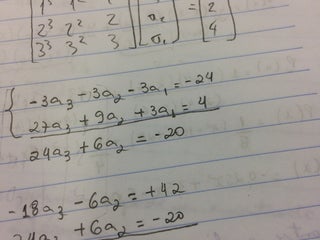 1³ 1² 1
2³ 2² 2 a₂ = 2
3³ 3² 3 a₁ 4
-3a₃ - 3a₂ - 3a₁ = -24
27a₃ + 9a₂ + 3a₁ = 4
24a₃ + 6a₂ = -20
-18a₃ - 6a₂ = +42
24a₃ + 6a₂ = -20